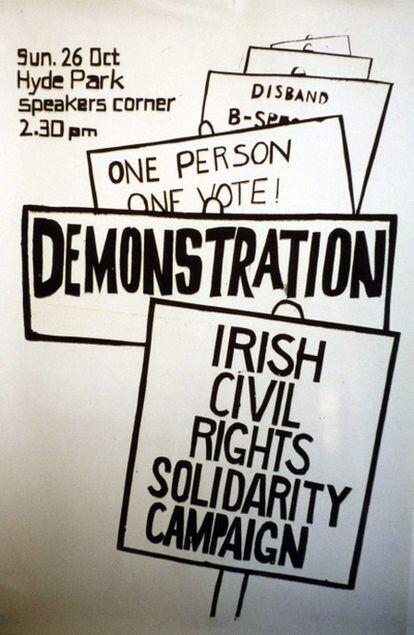 Sun. 26 Oct
Hyde Park
speakers corner
2.30 pm
DISBAND
ONE PERSON
ONE VOTE!
DEMONSTRATION
IRISH
CIVIL
RIGHTS
SOLIDARITY
CAMPAIGN